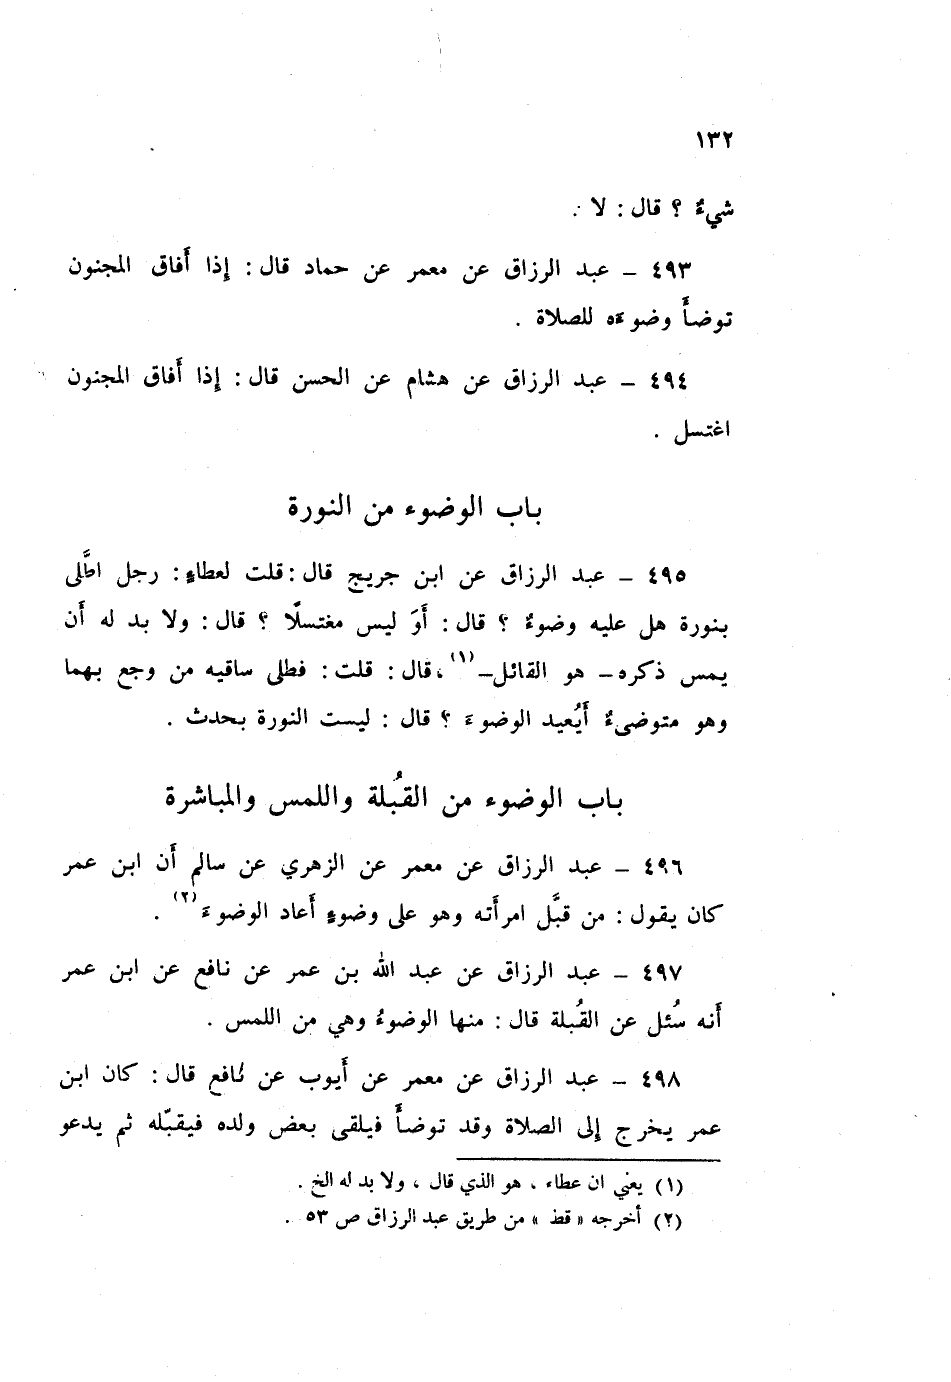 ١٣٢
شيءٌ ؟ قال : لا .
٤٩٣ ــ عبد الرزاق عن معمر عن حماد قال : إذا أَفاق المجنون
توضأَ وضوءَه للصلاة .
٤٩٤ ــ عبد الرزاق عن هشام عن الحسن قال : إذا أَفاق المجنون
اغتسل .
باب الوضوء من النورة
٤٩٥ ــ عبد الرزاق عن ابن جريج قال : قلت لعطاءٍ : رجل اطَّلى
بنورة هل عليه وضوءٌ ؟ قال : أَوَ ليس مغتسلًا ؟ قال : ولا بد له أَن
يمس ذكره ــ هو القائل ــ(١) ، قال : قلت : فطلى ساقيه من وجع بهما
وهو متوضىءٌ أَيُعيد الوضوءَ ؟ قال : ليست النورة بحدث .
باب الوضوء من القُبلة واللمس والمباشرة
٤٩٦ ــ عبد الرزاق عن معمر عن الزهري عن سالم أَن ابن عمر
كان يقول : من قبَّل امرأَته وهو على وضوءٍ أَعاد الوضوءَ(٢) .
٤٩٧ ــ عبد الرزاق عن عبد الله بن عمر عن نافع عن ابن عمر
أَنه سُئل عن القُبلة قال : منها الوضوءُ وهي من اللمس .
٤٩٨ ــ عبد الرزاق عن معمر عن أَيوب عن نافع قال : كان ابن
عمر يخرج إلى الصلاة وقد توضأَ فيلقى بعض ولده فيقبّله ثم يدعو
(١) يعني ان عطاء ، هو الذي قال ، ولا بد له الخ .
(٢) أخرجه « قط » من طريق عبد الرزاق ص ٥٣ .